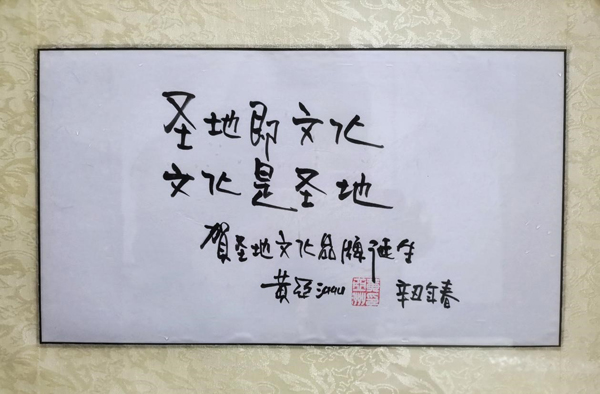 圣地即文化
文化是圣地
贺圣地文化品牌诞生
黄亚洲 辛丑年春